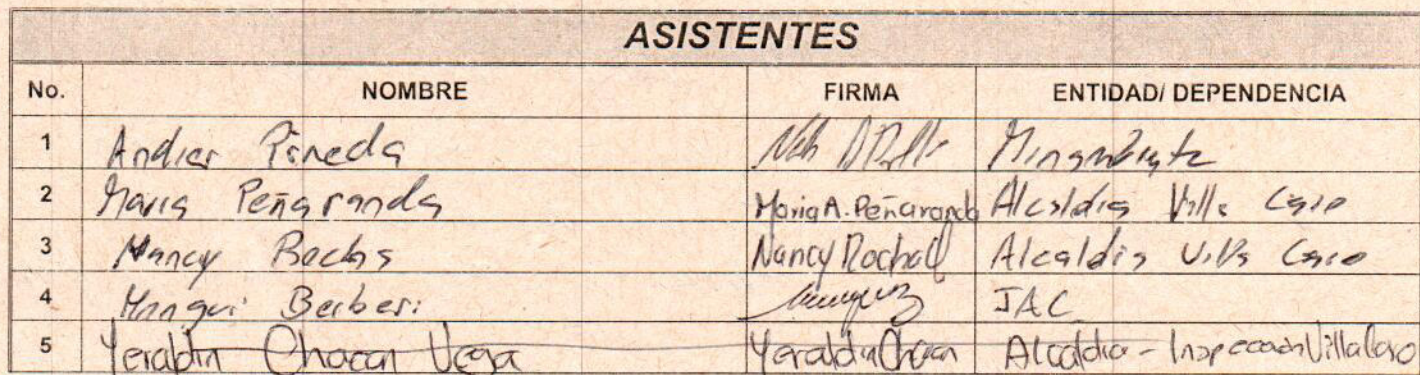 ASISTENTES
No. NOMBRE FIRMA ENTIDAD/ DEPENDENCIA
1 Andres Pineda Minambiente
2 Maria Peñaranda Maria A. Peñaranda Alcaldia Villa Caro
3 Nancy Rocha Alcaldia Villa Caro
4 JAC
5 Yeraldin Chacon Vega Yeraldin Chacon Alcaldia - Inspeccion Villa Caro